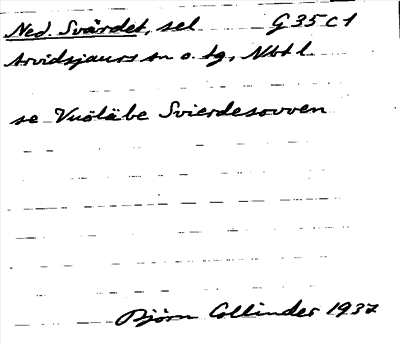 Ned. Svärdet, sel G 35 c 1
Arvidsjaurs sn o. tg, Nbt l.
se Vuöläbe Svierdesavven
Björn Collinder 1937